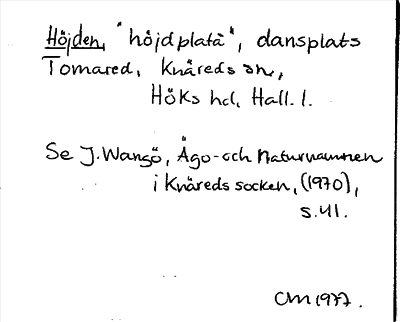 Höjden, "höjdplatå", dansplats
Tomared, Knäreds sn,
Höks hd, Hall. l.
Se J. Wangö, Ägo- och Naturnamnen
i Knäreds socken, (1970),
s. 41.
CM 1977.